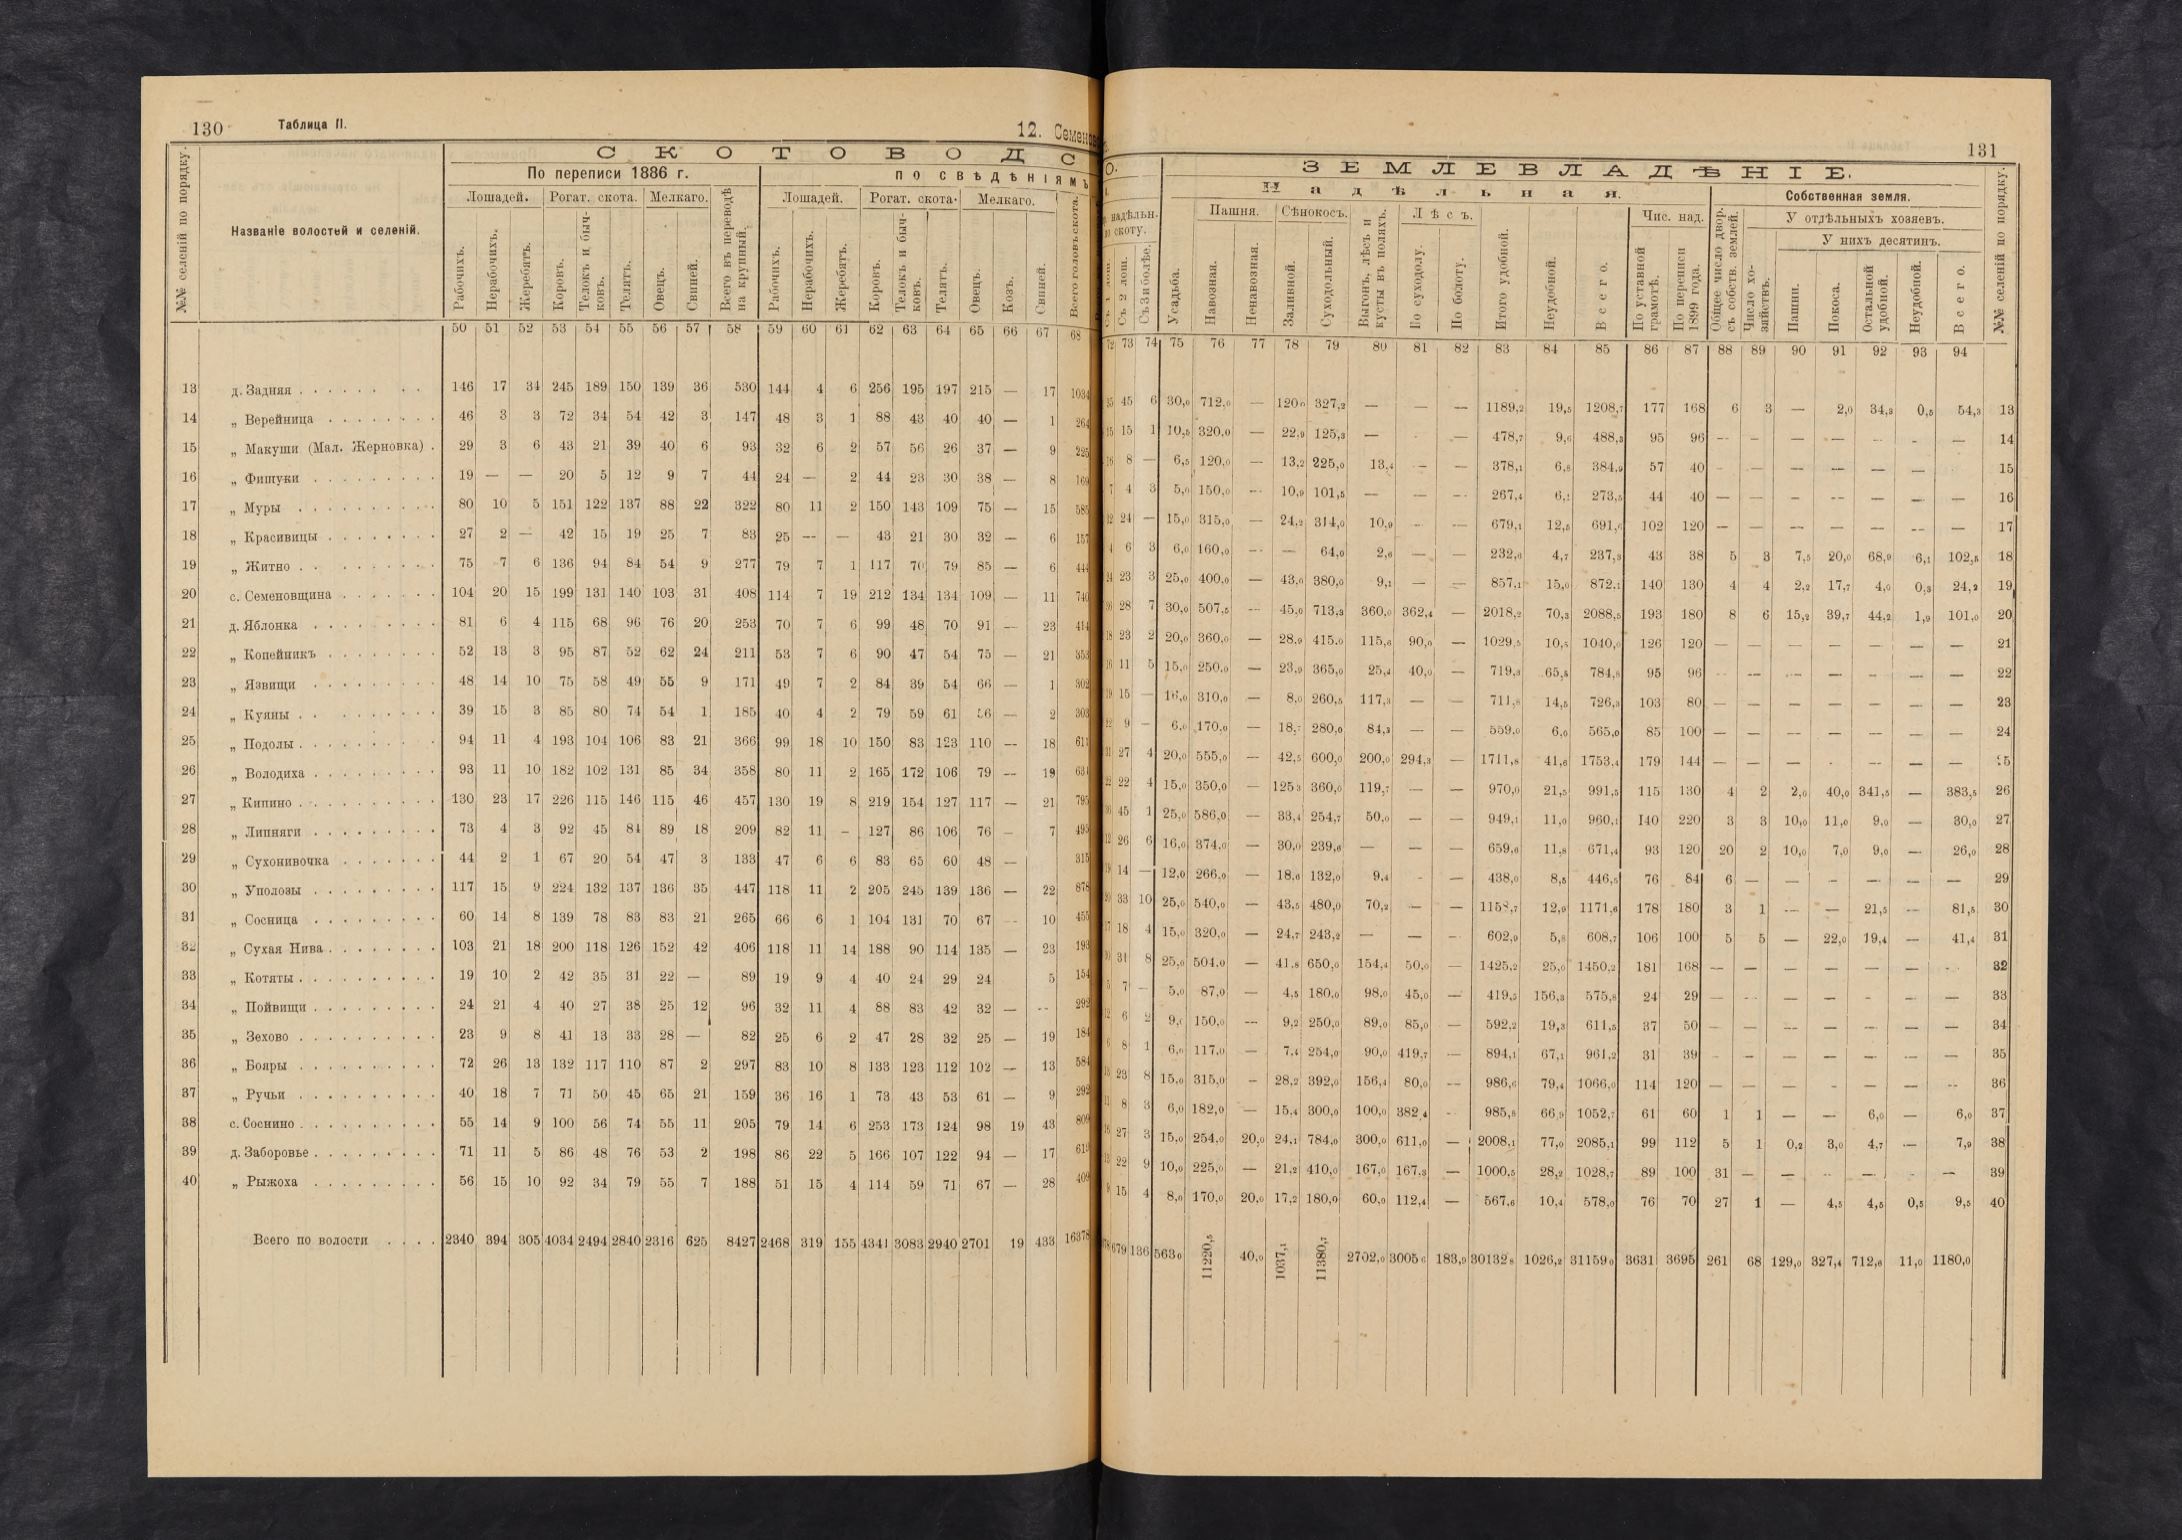 130 Таблица II. 12. Семенов
СКОТОВОДС
По переписи 1886 г. по свѣдѣніямъ
№№ селеній по порядку. Названіе волостей и селеній. Лошадей. Рогат. скота. Мелкаго. Всего въ переводѣ на крупный. Лошадей. Рогат. скота. Мелкаго. Всего головъ скота.
Рабочихъ. Нерабочихъ. Жеребятъ. Коровъ. Телокъ и бычковъ. Телятъ. Овецъ. Свиней. Рабочихъ. Нерабочихъ. Жеребятъ. Коровъ. Телокъ и бычковъ. Телятъ. Овецъ. Козъ. Свиней.
50 51 52 53 54 55 56 57 58 59 60 61 62 63 64 65 66 67 68
13 д. Задняя 146 17 34 245 189 150 139 36 530 144 4 6 256 195 197 215 — 17 1034
14 „ Верейница 46 3 3 72 34 54 42 3 147 48 3 1 88 43 40 40 — 1 264
15 „ Макуши (Мал. Жерновка) 29 3 6 43 21 39 40 6 93 32 6 2 57 56 26 37 — 9 225
16 „ Фишуки 19 — — 20 5 12 9 7 44 24 — 2 44 23 30 38 — 8 169
17 „ Муры 80 10 5 151 122 137 88 22 322 80 11 2 150 143 109 75 — 15 585
18 „ Красивицы 27 2 — 42 15 19 25 7 83 25 — — 43 21 30 32 — 6 157
19 „ Житно 75 7 6 136 94 84 54 9 277 79 7 1 117 70 79 85 — 6 444
20 с. Семеновщина 104 20 15 199 131 140 103 31 408 114 7 19 212 134 134 109 — 11 740
21 д. Яблонка 81 6 4 115 68 96 76 20 253 70 7 6 99 48 70 91 — 23 414
22 „ Копейникъ 52 13 3 95 87 52 62 24 211 53 7 6 90 47 54 75 — 21 353
23 „ Язвищи 48 14 10 75 58 49 55 9 171 49 7 2 84 39 54 66 — 1 302
24 „ Куяны 39 15 3 85 80 74 54 1 185 40 4 2 79 59 61 56 — 2 303
25 „ Подолы 94 11 4 193 104 106 83 21 366 99 18 10 150 83 123 110 — 18 611
26 „ Володиха 93 11 10 182 102 131 85 34 358 80 11 2 165 172 106 79 — 19 634
27 „ Кипино 130 23 17 226 115 146 115 46 457 130 19 8 219 154 127 117 — 21 795
28 „ Липняги 73 4 3 92 45 84 89 18 209 82 11 - 127 86 106 76 — 7 495
29 „ Сухонивочка 44 2 1 67 20 54 47 3 133 47 6 6 83 65 60 48 — 315
30 „ Уполозы 117 15 9 224 132 137 136 35 447 118 11 2 205 245 139 136 — 22 878
31 „ Сосница 60 14 8 139 78 83 83 21 265 66 6 1 104 131 70 67 — 10 455
32 „ Сухая Нива 103 21 18 200 118 126 152 42 406 118 11 14 188 90 114 135 — 23 193
33 „ Котяты 19 10 2 42 35 31 22 — 89 19 9 4 40 24 29 24 5 154
34 „ Пойвищи 24 21 4 40 27 38 25 12 96 32 11 4 88 83 42 32 — — 292
35 „ Зехово 23 9 8 41 13 33 28 — 82 25 6 2 47 28 32 25 — 19 184
36 „ Бояры 72 26 13 132 117 110 87 2 297 83 10 8 133 123 112 102 — 13 584
37 „ Ручьи 40 18 7 71 50 45 65 21 159 36 16 1 73 43 53 61 — 9 292
38 с. Соснино 55 14 9 100 56 74 55 11 205 79 14 6 253 173 124 98 19 43 809
39 д. Заборовье 71 11 5 86 48 76 53 2 198 86 22 5 166 107 122 94 — 17 619
40 „ Рыжоха 56 15 10 92 34 79 55 7 188 51 15 4 114 59 71 67 — 28 409
Всего по волости 2340 394 305 4034 2494 2840 2316 625 8427 2468 319 155 4341 3083 2940 2701 19 433 16378
131
О. ЗЕМЛЕВЛАДѢНІЕ.
Надѣльная. Собственная земля.
надѣльн. скоту. Усадьба. Пашня. Сѣнокосъ. Выгонъ, лѣсъ и кусты въ поляхъ. Лѣсъ. Итого удобной. Неудобной. Всего. Чис. над. Общее число двор. съ собств. землей. У отдѣльныхъ хозяевъ. №№ селеній по порядку.
У нихъ десятинъ.
Съ 2 лош. Съ 3 и болѣе. Навозная. Ненавозная. Заливной. Суходольный. По суходолу. По болоту. По уставной грамотѣ. По переписи 1899 года. Число хозяйствъ. Пашни. Покоса. Остальной удобной. Неудобной. Всего.
72 73 74 75 76 77 78 79 80 81 82 83 84 85 86 87 88 89 90 91 92 93 94
35 45 6 30,0 712,0 — 120,0 327,2 — — — 1189,2 19,5 1208,7 177 168 6 3 — 2,0 34,3 0,5 54,3 13
15 15 1 10,5 320,0 — 22,9 125,3 — — 478,7 9,6 488,3 95 96 — — — — — — — 14
16 8 — 6,5 120,0 — 13,2 225,0 13,4 — — 378,1 6,8 384,9 57 40 — — — — — — — 15
7 4 3 5,0 150,0 — 10,9 101,5 — — — 267,4 6,1 273,5 44 40 — — — — — — — 16
12 24 — 15,0 315,0 — 24,2 314,0 10,9 — — 679,1 12,5 691,6 102 120 — — — — — — — 17
4 6 3 6,0 160,0 — — 64,0 2,6 — — 232,6 4,7 237,3 43 38 5 3 7,5 20,0 68,9 6,1 102,5 18
24 23 3 25,0 400,0 — 43,0 380,0 9,1 — — 857,1 15,0 872,1 140 130 4 4 2,2 17,7 4,0 0,3 24,2 19
36 28 7 30,0 507,5 — 45,0 713,3 360,0 362,4 — 2018,2 70,3 2088,5 193 180 8 6 15,2 39,7 44,2 1,9 101,0 20
18 23 2 20,0 360,0 — 28,9 415,0 115,6 90,0 — 1029,5 10,5 1040,0 126 120 — — — — — — — 21
16 11 5 15,0 250,0 — 23,9 365,0 25,4 40,0 — 719,3 65,5 784,8 95 96 — — — — — — — 22
19 15 — 16,0 310,0 — 8,0 260,5 117,3 — — 711,8 14,5 726,3 103 80 — — — — — — — 23
22 9 — 6,0 170,0 — 18,7 280,0 84,3 — — 559,0 6,0 565,0 85 100 — — — — — — — 24
31 27 4 20,0 555,0 — 42,5 600,0 200,0 294,3 — 1711,8 41,6 1753,4 179 144 — — — — — — — 25
22 22 4 15,0 350,0 — 125,3 360,0 119,7 — — 970,0 21,5 991,5 115 130 4 2 2,0 40,0 341,5 — 383,5 26
36 45 1 25,0 586,0 — 33,4 254,7 50,0 — — 949,1 11,0 960,1 140 220 3 3 10,0 11,0 9,0 — 30,0 27
12 26 6 16,0 374,0 — 30,0 239,6 — — — 659,6 11,8 671,4 93 120 20 2 10,0 7,0 9,0 — 26,0 28
19 14 — 12,0 266,0 — 18,6 132,0 9,4 - — 438,0 8,5 446,5 76 84 6 — — — — — — 29
33 10 25,0 540,0 — 43,5 480,0 70,2 — — 1158,7 12,9 1171,6 178 180 3 1 — — 21,5 — 81,5 30
17 18 4 15,0 320,0 — 24,7 243,2 — — — 602,9 5,8 608,7 106 100 5 5 — 22,0 19,4 — 41,4 31
31 8 25,0 504,0 — 41,8 650,0 154,4 50,0 — 1425,2 25,0 1450,2 181 168 — — — — — — — 32
5 7 — 5,0 87,0 — 4,5 180,0 98,0 45,0 — 419,5 156,3 575,8 24 29 — — — — — — — 33
12 6 2 9,0 150,0 — 9,2 250,0 89,0 85,0 — 592,2 19,3 611,5 37 50 — — — — — — — 34
6 8 1 6,0 117,0 — 7,4 254,0 90,0 419,7 — 894,1 67,1 961,2 31 39 — — — — — — — 35
23 8 15,0 315,0 — 28,2 392,0 156,4 80,0 — 986,6 79,4 1066,0 114 120 — — — — — — — 36
11 8 3 6,0 182,0 — 15,4 300,0 100,0 382,4 - 985,8 66,9 1052,7 61 60 1 1 — — 6,0 — 6,0 37
27 3 15,0 254,0 20,0 24,1 784,0 300,0 611,0 — 2008,1 77,0 2085,1 99 112 5 1 0,2 3,0 4,7 — 7,9 38
22 9 10,0 225,0 — 21,2 410,0 167,0 167,3 — 1000,5 28,2 1028,7 89 100 31 — — — — — — 39
9 15 4 8,0 170,0 20,0 17,2 180,0 60,0 112,4 — 567,6 10,4 578,0 76 70 27 1 — 4,5 4,5 0,5 9,5 40
679 136 563,0 11220,5 40,0 1037,1 11380,7 2702,0 3005,6 183,9 30132,8 1026,2 31159,0 3631 3695 261 68 129,0 327,4 712,6 11,0 1180,0